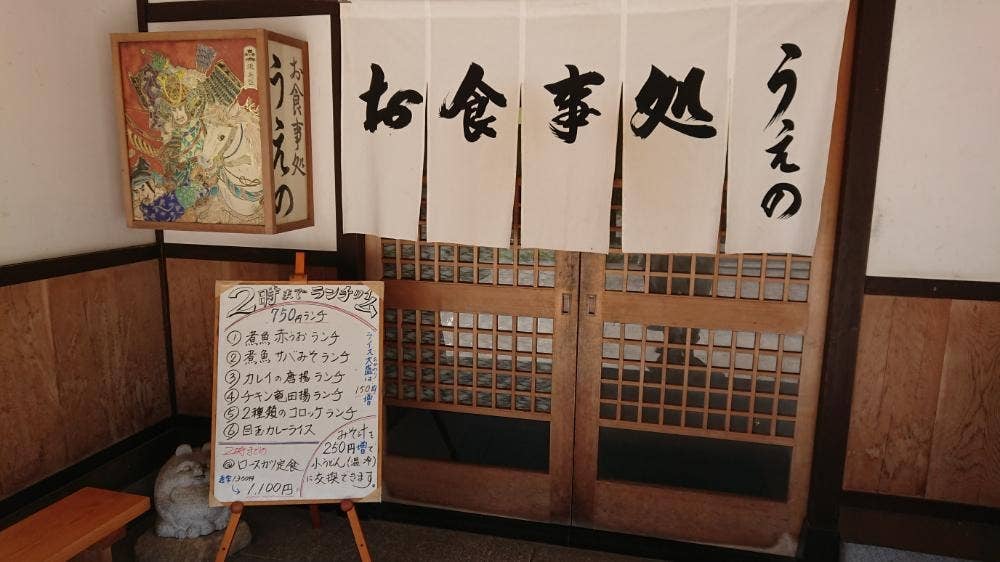 お食事処
うえの
お食事処
うえの
2時までランチのみ
750円ランチ
① 煮魚 赤うおランチ
② 煮魚 サバみそランチ
③ カレイの唐揚ランチ
④ チキン竜田揚ランチ
⑤ 2種類のコロッケランチ
⑥ 目玉カレーライス
ライス大盛は
150円増
2時までの
ロースカツ定食
通常1300円
↳ 1,100円
みそ汁を
250円増で
小うどん(温・冷)
に交換できます。